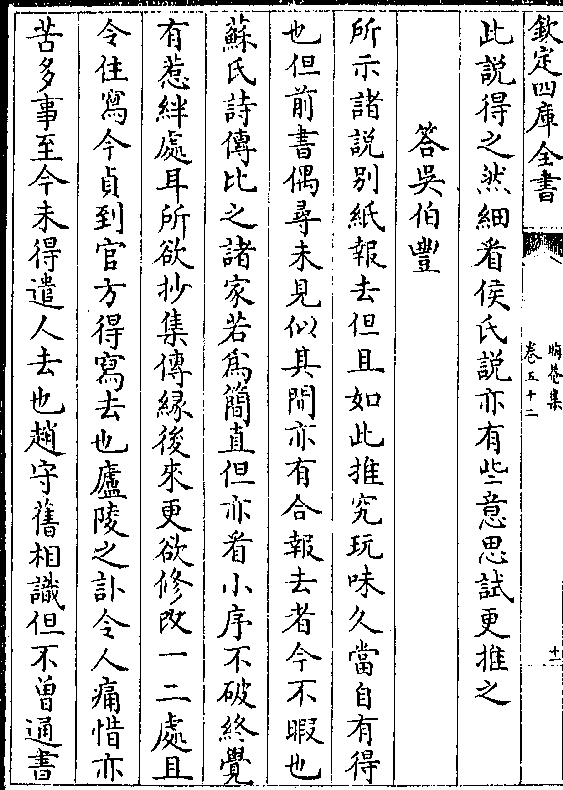 欽定四庫全書
晦菴集
卷五十二
十一
此説得之然細看侯氏說亦有些意思試更推之
答吳伯豐
所示諸説别紙報去但且如此推究玩味久當自有得
也但前書偶尋未見似其間亦有合報去者今不暇也
蘇氏詩傳比之諸家若爲簡直但亦看小序不破終覺
有惹絆處耳所欲抄集傳緣後來更欲修改一二處且
令住寫今貞到官方得寫去也廬陵之訃令人痛惜亦
苦多事至今未得遣人去也趙守舊相識但不曾通書